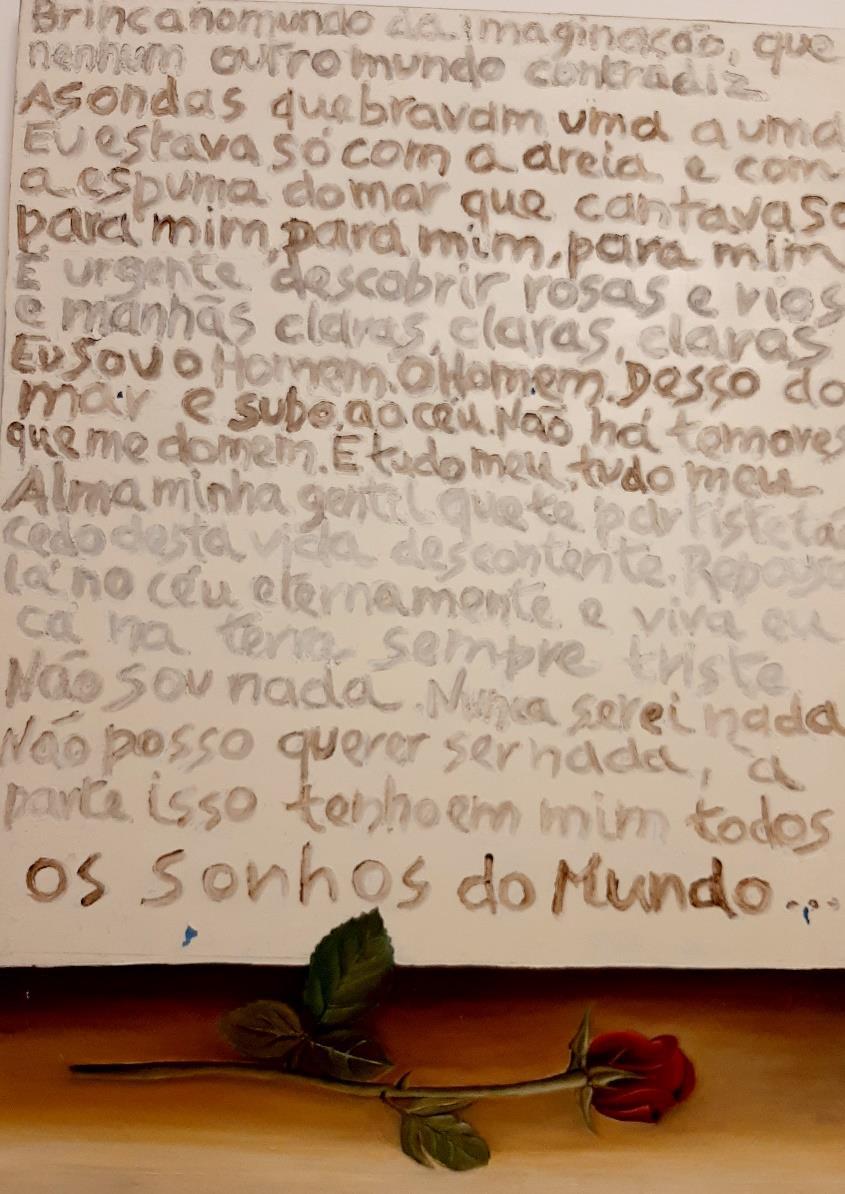 Brinca no mundo da imaginação, que
nenhum outro mundo contradiz
As ondas quebravam uma a uma
Eu estava só com a areia e com
a espuma do mar que cantava só
para mim, para mim, para mim
É urgente descobrir rosas e rios
e manhãs claras, claras, claras
Eu sou o Homem. O Homem. Desço do
mar e subo ao céu. Não há temores
que me domem. E tudo meu, tudo meu
Alma minha gentil que te partiste tã
cedo desta vida descontente. Repousa
lá no céu eternamente e viva eu
cá na terra sempre triste
Não sou nada. Nunca serei nada
Não posso querer ser nada, à
parte isso tenho em mim todos
os sonhos do Mundo...